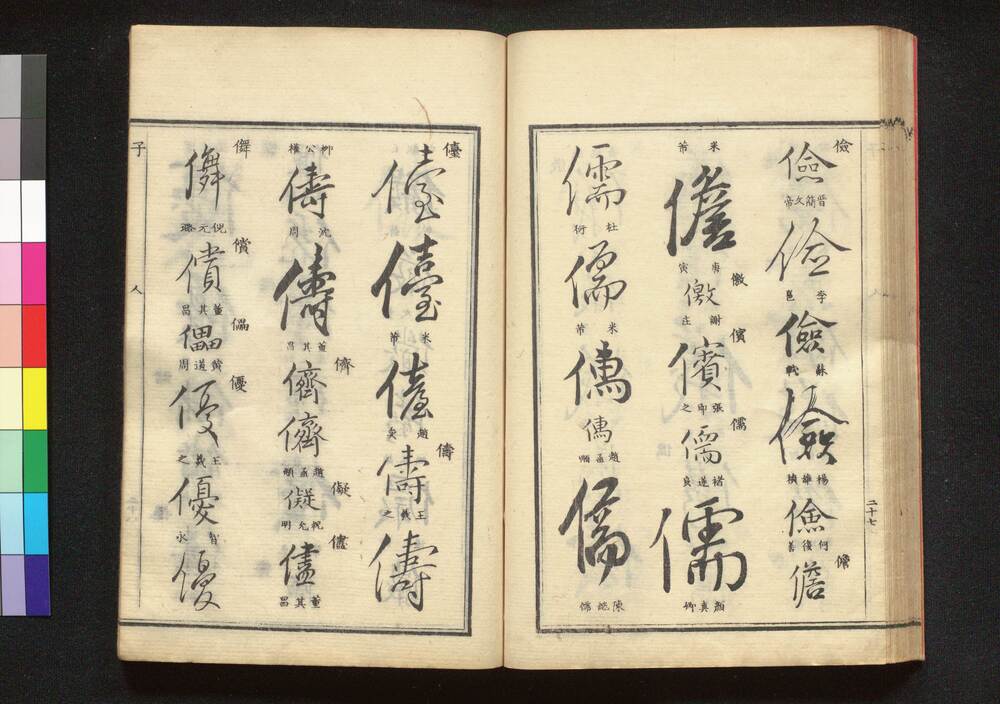 儉 儉 晉簡文帝 儉 李邕 儉 蘇軾 儉 楊維楨 儉 儋 儋
米芾 儋 唐寅 儌 儌 謝庄 儐 儐 張即之 儒 儒 褚遂良 儒 顏真卿
儒 杜衍 儒 米芾 儒 儒 趙孟頫 儒
二十七
儓 儓 儓 米芾 儓 儔 儔 王羲之 儔
柳公權 儔 沈周 儔 董其昌 儕 儕 儕 趙孟頫 儗 儗 祝允明 儘 儘 董其昌
儛 儛 倪元璐 償 償 董其昌 儡 儡 黃道周 優 優 王羲之 優 智永 優
子 人